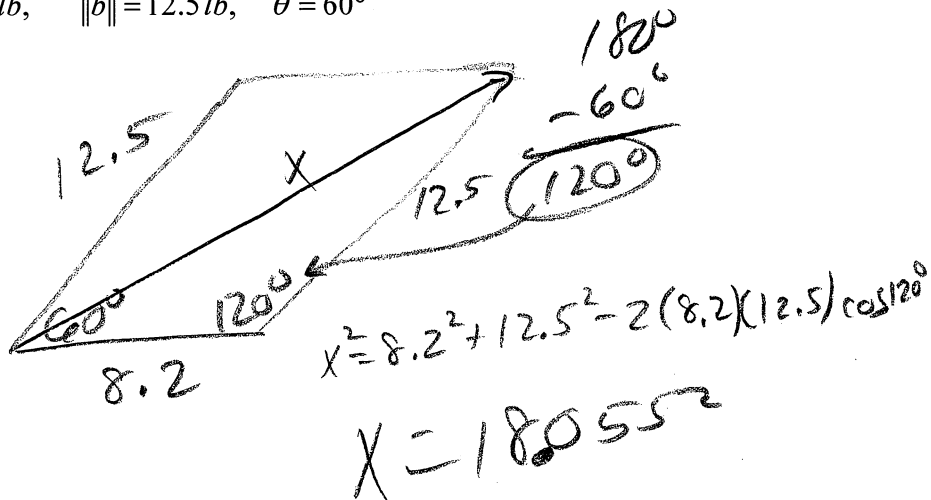 lb, ‖b‖ = 12.5 lb, θ = 60°
180°
-60°
120°
12.5
x
12.5
60°
120°
8.2
x² = 8.2² + 12.5² - 2(8.2)(12.5) cos 120°
x = 18.0552